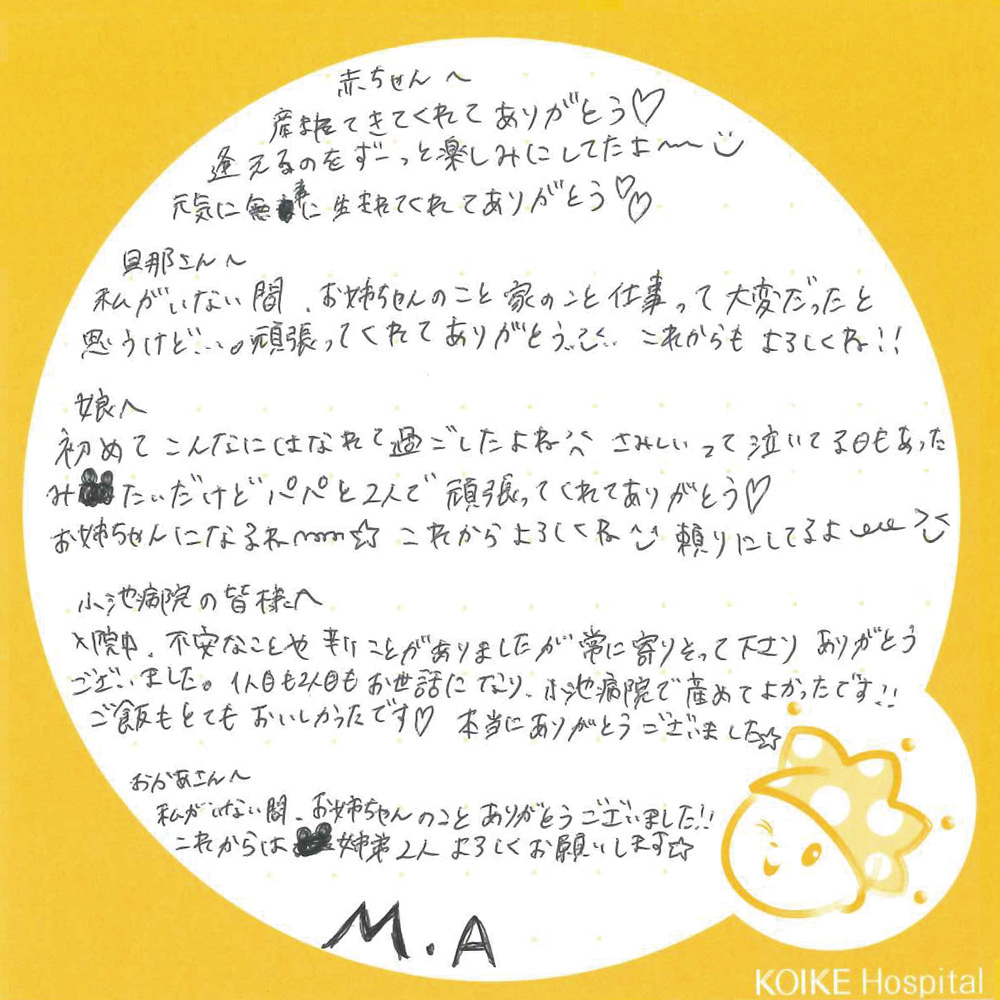 赤ちゃんへ
産まれてきてくれてありがとう♡
逢えるのをずーっと楽しみにしてたよ〜
元気に無事に生まれてくれてありがとう♡♡
旦那さんへ
私がいない間、お姉ちゃんのこと家のこと仕事って大変だったと
思うけど…。頑張ってくれてありがとう。これからもよろしくね!!
娘へ
初めてこんなにはなれて過ごしたよね^^ さみしいって泣いてる日もあった
みたいだけどパパと2人で頑張ってくれてありがとう♡
お姉ちゃんになるね〜☆ これからよろしくね 頼りにしてるよ
小池病院の皆様へ
入院中、不安なことや辛いことがありましたが常に寄りそって下さりありがとう
ございました。1人目も2人目もお世話になり、小池病院で産めてよかったです!!
ご飯もとてもおいしかったです♡ 本当にありがとうございました☆
おかあさんへ
私がいない間、お姉ちゃんのことありがとうございました!!
これからは姉弟2人よろしくお願いします☆
M.A
KOIKE Hospital